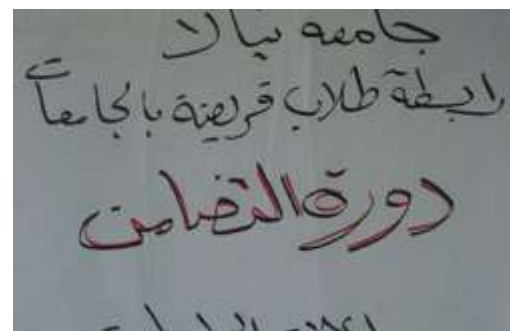 جامعه نيالا
رابطة طلاب قريضة بالجامعات
دورة التضامن